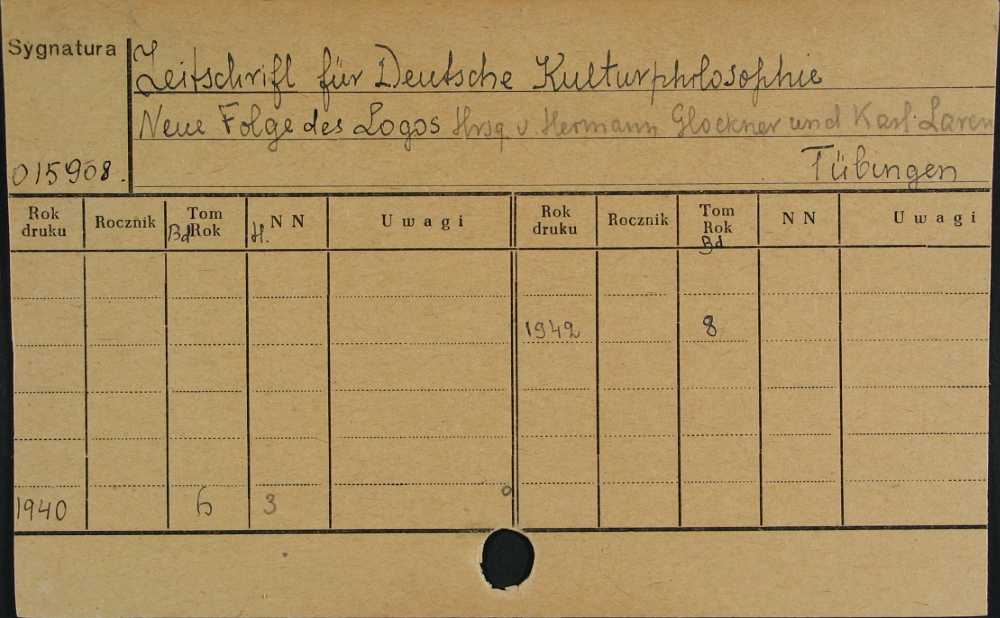 Sygnatura
Zeitschrift für Deutsche Kulturphilosophie
Neue Folge des Logos Hrsg v Hermann Glockner und Karl Laren
015908. Tübingen
Rok druku Rocznik Tom Rok Bd N N H. Uwagi Rok druku Rocznik Tom Rok Bd N N Uwagi
1942 8
1940 6 3